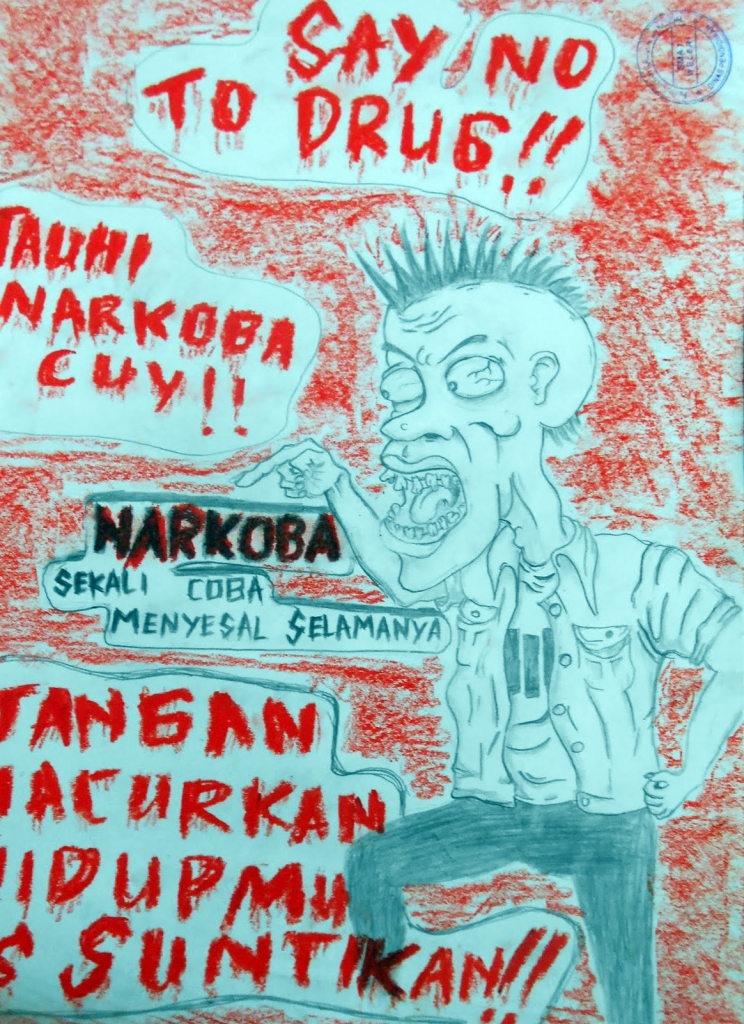 SAY NO
TO DRUG!!
TAUHI
NARKOBA
CUY!!
NARKOBA
SEKALI COBA
MENYESAL SELAMANYA
TANGAN
ACURKAN
IDUPMU
S SUNTIKAN!!